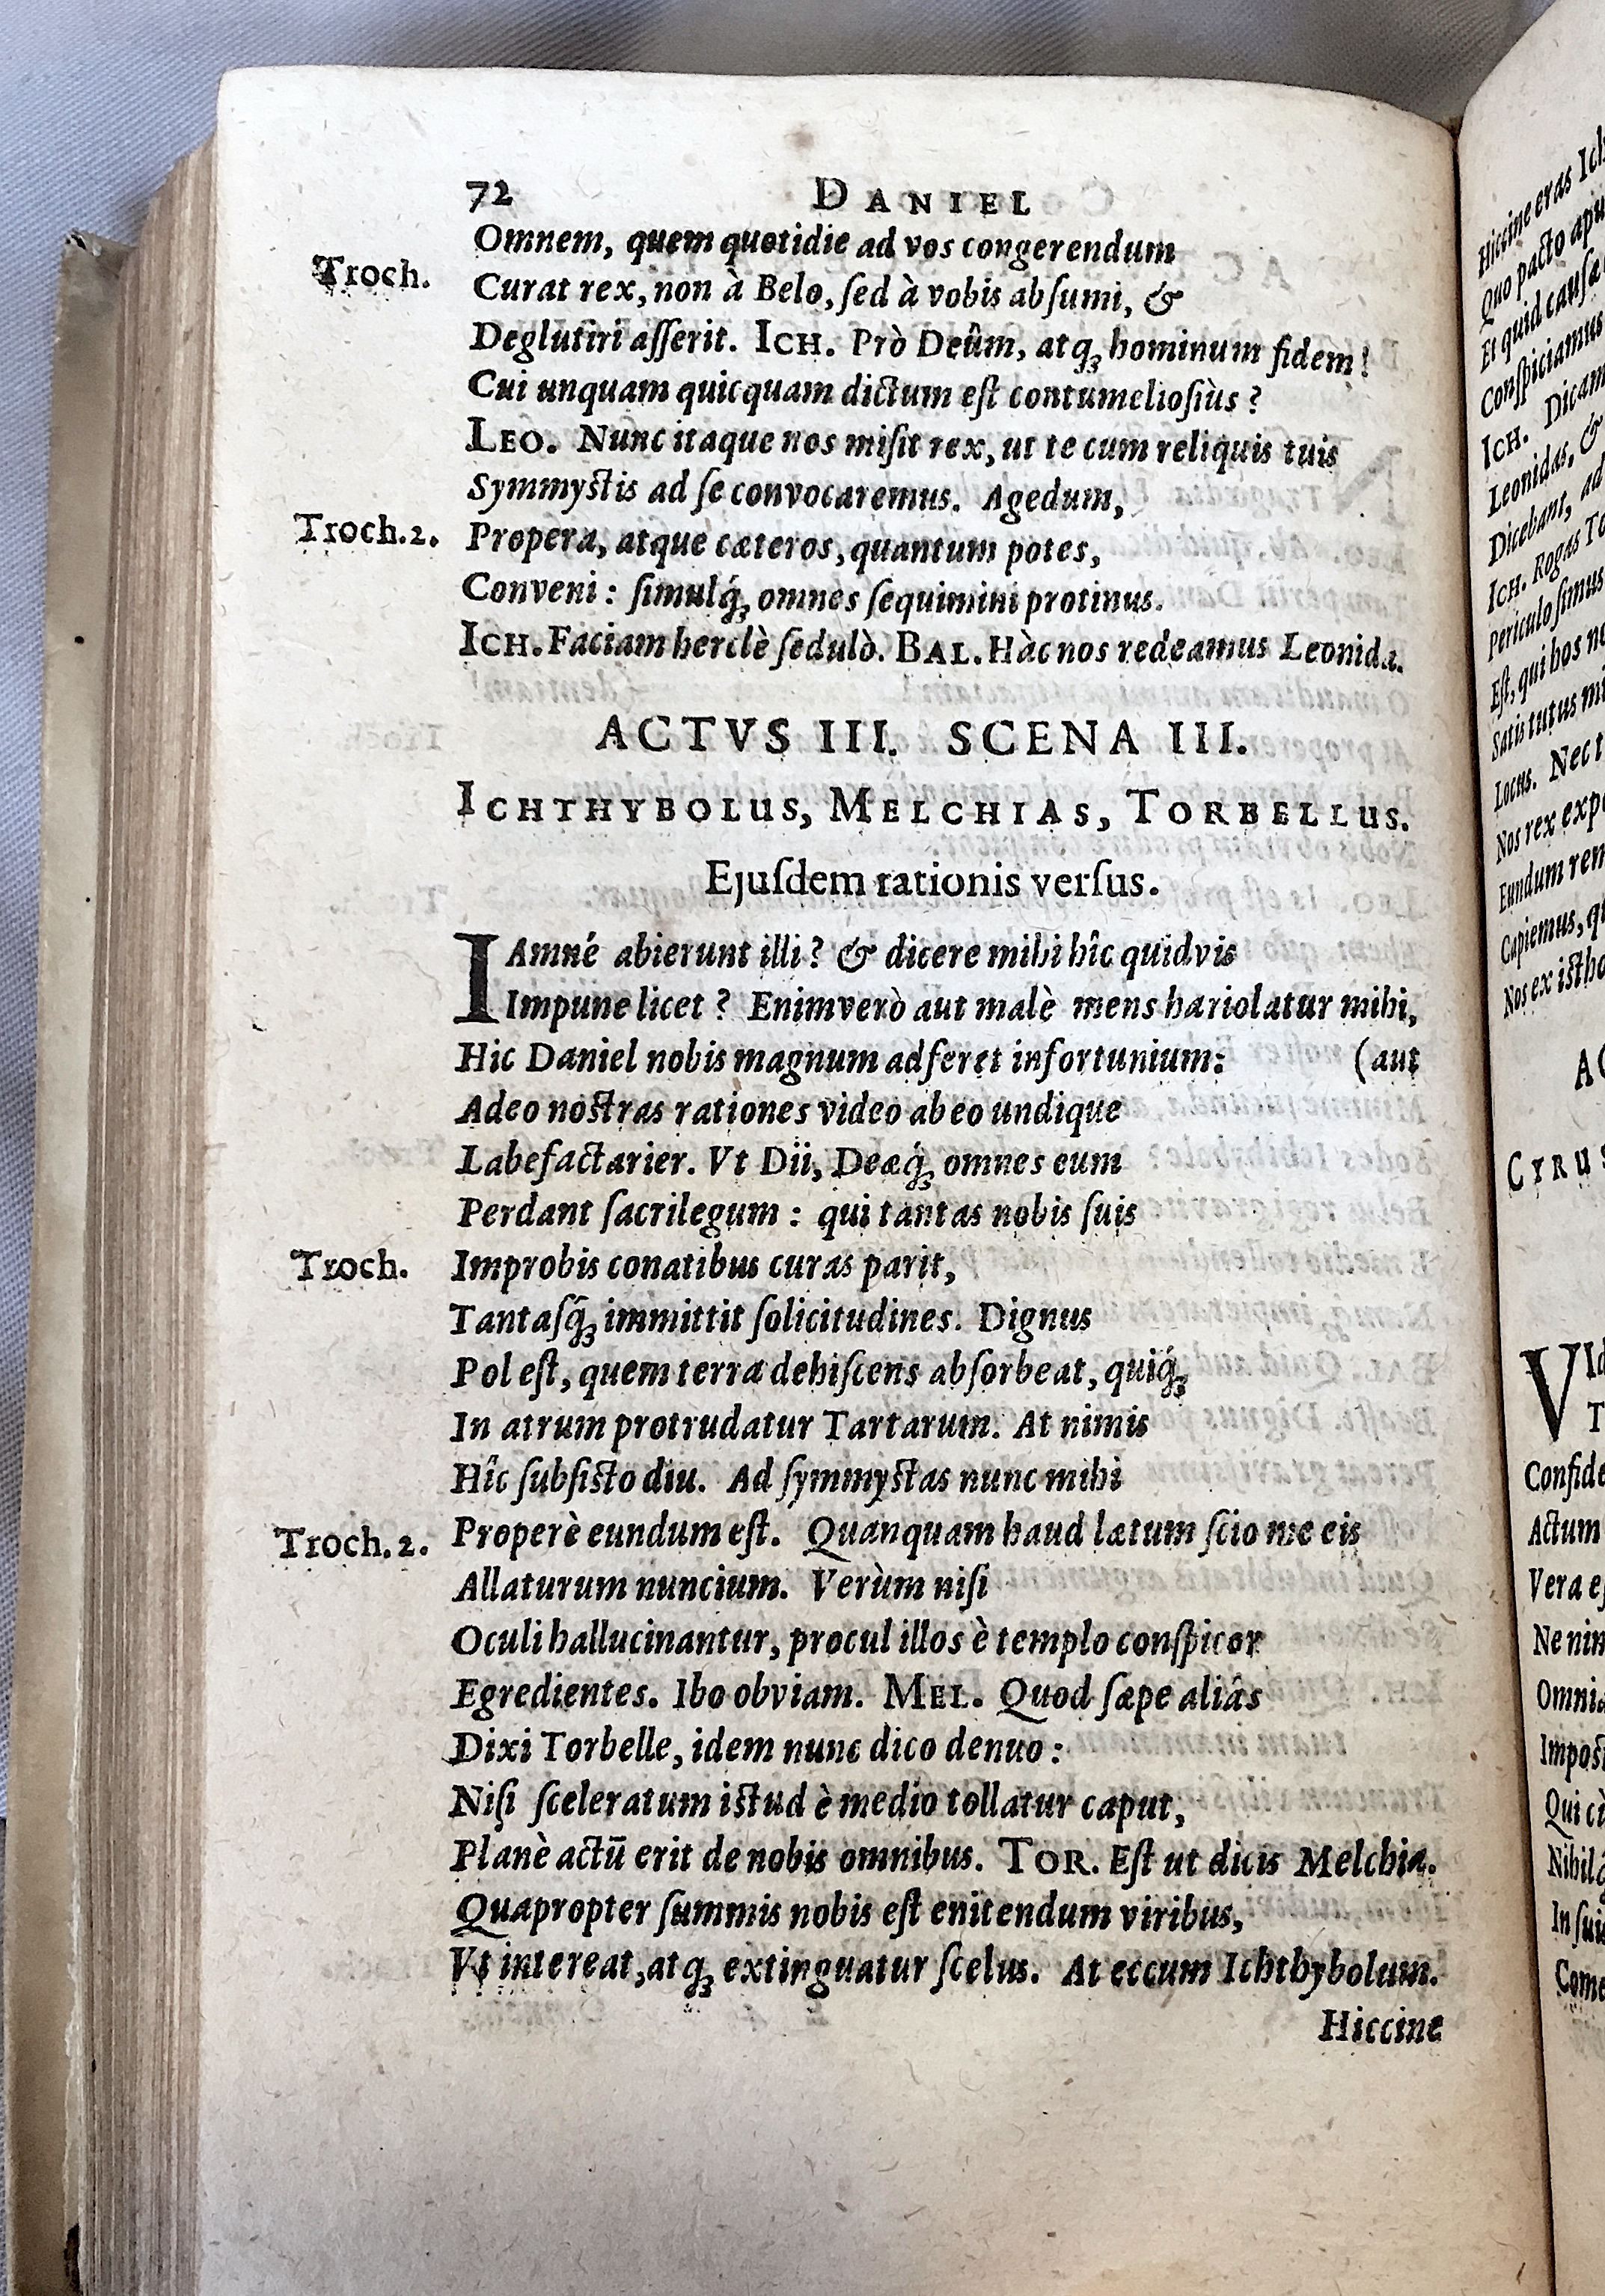 72 DANIEL
Omnem, quem quotidie ad vos congerendum
Troch. Curat rex, non à Belo, ſed à vobis abſumi, &
Deglutiri aſſerit. ICH. Prò Deûm, atq; hominum fidem!
Cui unquam quicquam dictum eſt contumelioſiùs?
LEO. Nunc itaque nos miſit rex, ut te cum reliquis tuis
Symmyſtis ad ſe convocaremus. Agedum,
Troch. 2. Propera, atque cæteros, quantum potes,
Conveni: ſimulq́; omnes ſequimini protinus.
ICH. Faciam herclè ſedulò. BAL. Hàc nos redeamus Leonida.
ACTVS III. SCENA III.
ICHTHYBOLUS, MELCHIAS, TORBELLUS.
Ejuſdem rationis verſus.
IAmné abierunt illi? & dicere mihi hîc quidvis
Impune licet? Enimverò aut malè mens hariolatur mihi,
Hic Daniel nobis magnum adferet infortunium: (aut
Adeo noſtras rationes video ab eo undique
Labefactarier. Vt Dii, Deæq́; omnes eum
Perdant ſacrilegum: qui tantas nobis ſuis
Troch. Improbis conatibus curas parit,
Tantaſq́; immittit ſolicitudines. Dignus
Pol eſt, quem terra dehiſcens abſorbeat, quiq́;
In atrum protrudatur Tartarum. At nimis
Hîc ſubſiſto diu. Ad ſymmyſtas nunc mihi
Troch. 2. Properè eundum eſt. Quanquam haud lætum ſcio me eis
Allaturum nuncium. Verùm niſi
Oculi hallucinantur, procul illos è templo conſpicor
Egredientes. Ibo obviam. MEL. Quod ſæpe aliâs
Dixi Torbelle, idem nunc dico denuo:
Niſi ſceleratum iſtud è medio tollatur caput,
Planè actū erit de nobis omnibus. TOR. Eſt ut dicis Melchia.
Quapropter ſummis nobis eſt enitendum viribus,
Vt intereat, atq; extinguatur ſcelus. At eccum Ichthybolum.
Hiccine
Hiccine eras Ich
Quo pacto apu
Et quid cauſæ
Conſpiciamus
ICH. Dicam
Leonidas, &
Dicebant, ad
ICH. Rogas To
Periculo ſimus
Eſt, qui hos no
Satis tutus mi
Locus. Nec t
Nos rex expe
Eundum ren
Capiemus, qu
Nos ex iſtho
AC
CYRUS
VId
T
Confide
Actum
Vera eſ
Ne nim
Omnia
Impoſt
Qui ci
Nihil
In ſuis
Come